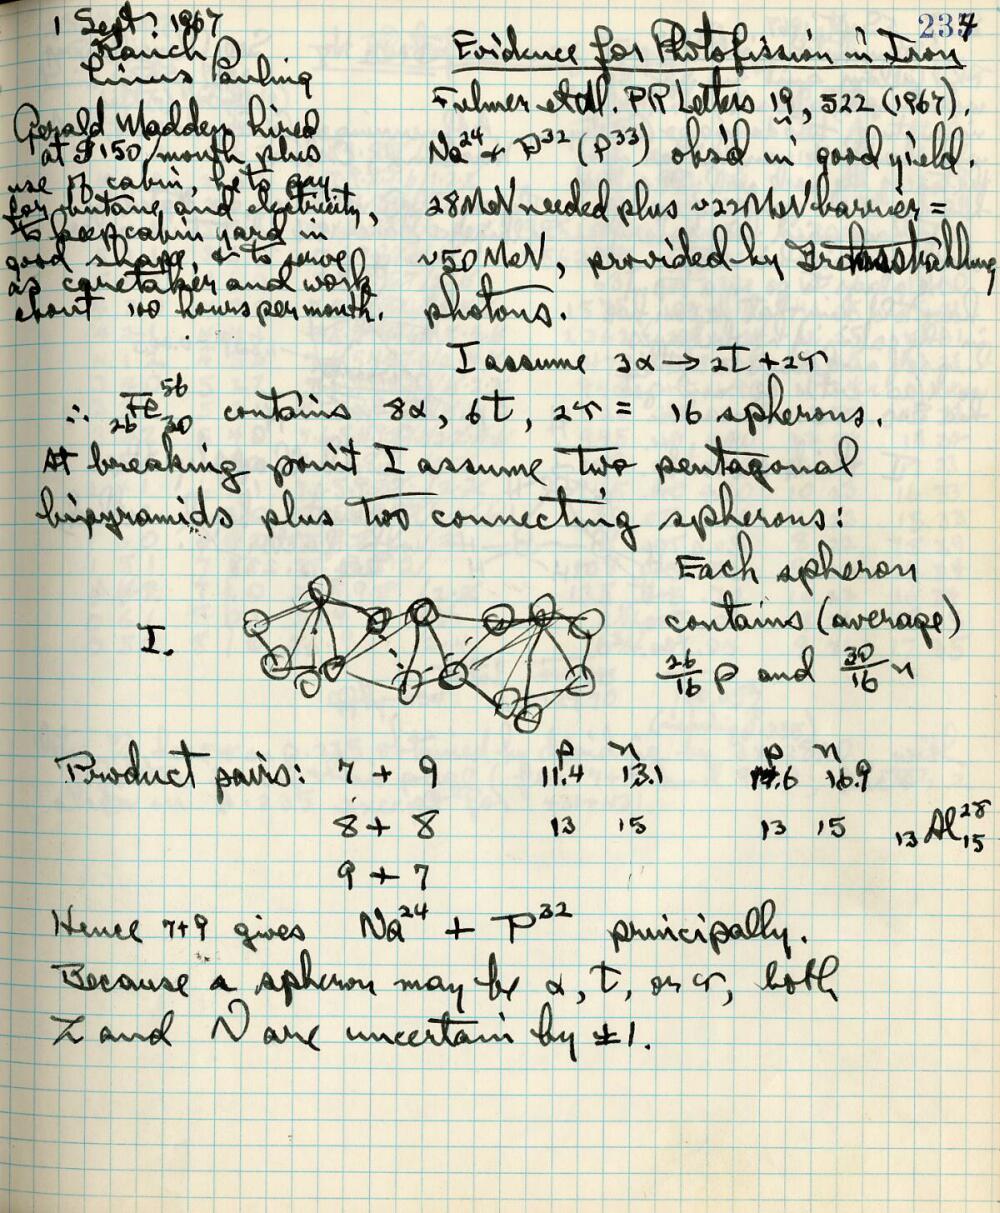 1 Sept. 1967
Ranch
Linus Pauling
Gerald Madden hired
at $150/month plus
use of cabin, he to pay
for butane and electricity,
to keep cabin yard in
good shape, & to serve
as caretaker and work
about 100 hours per month.
234
Evidence for Photofission in Iron
Fulmer et al. PR Letters 19, 522 (1967).
Na²⁴ + P³² (P³³) obs'd in good yield.
28 MeV needed plus ~22 MeV barrier =
~50 MeV, provided by
photons.
I assume 3α → 2t + 2τ
∴ ₂₆Fe⁵⁶₃₀ contains 8α, 6t, 2τ = 16 spherons.
At breaking point I assume two pentagonal
bipyramids plus two connecting spherons:
I.
Each spheron
contains (average)
26/16 p and 30/16 n
p n p n
Product pairs: 7 + 9 11.4 13.1 14.6 16.9
8 + 8 13 15 13 15 ₁₃Al²⁸₁₅
9 + 7
Hence 7+9 gives Na²⁴ + P³² principally.
Because a spheron may be α, t, or τ, both
Z and N are uncertain by ±1.